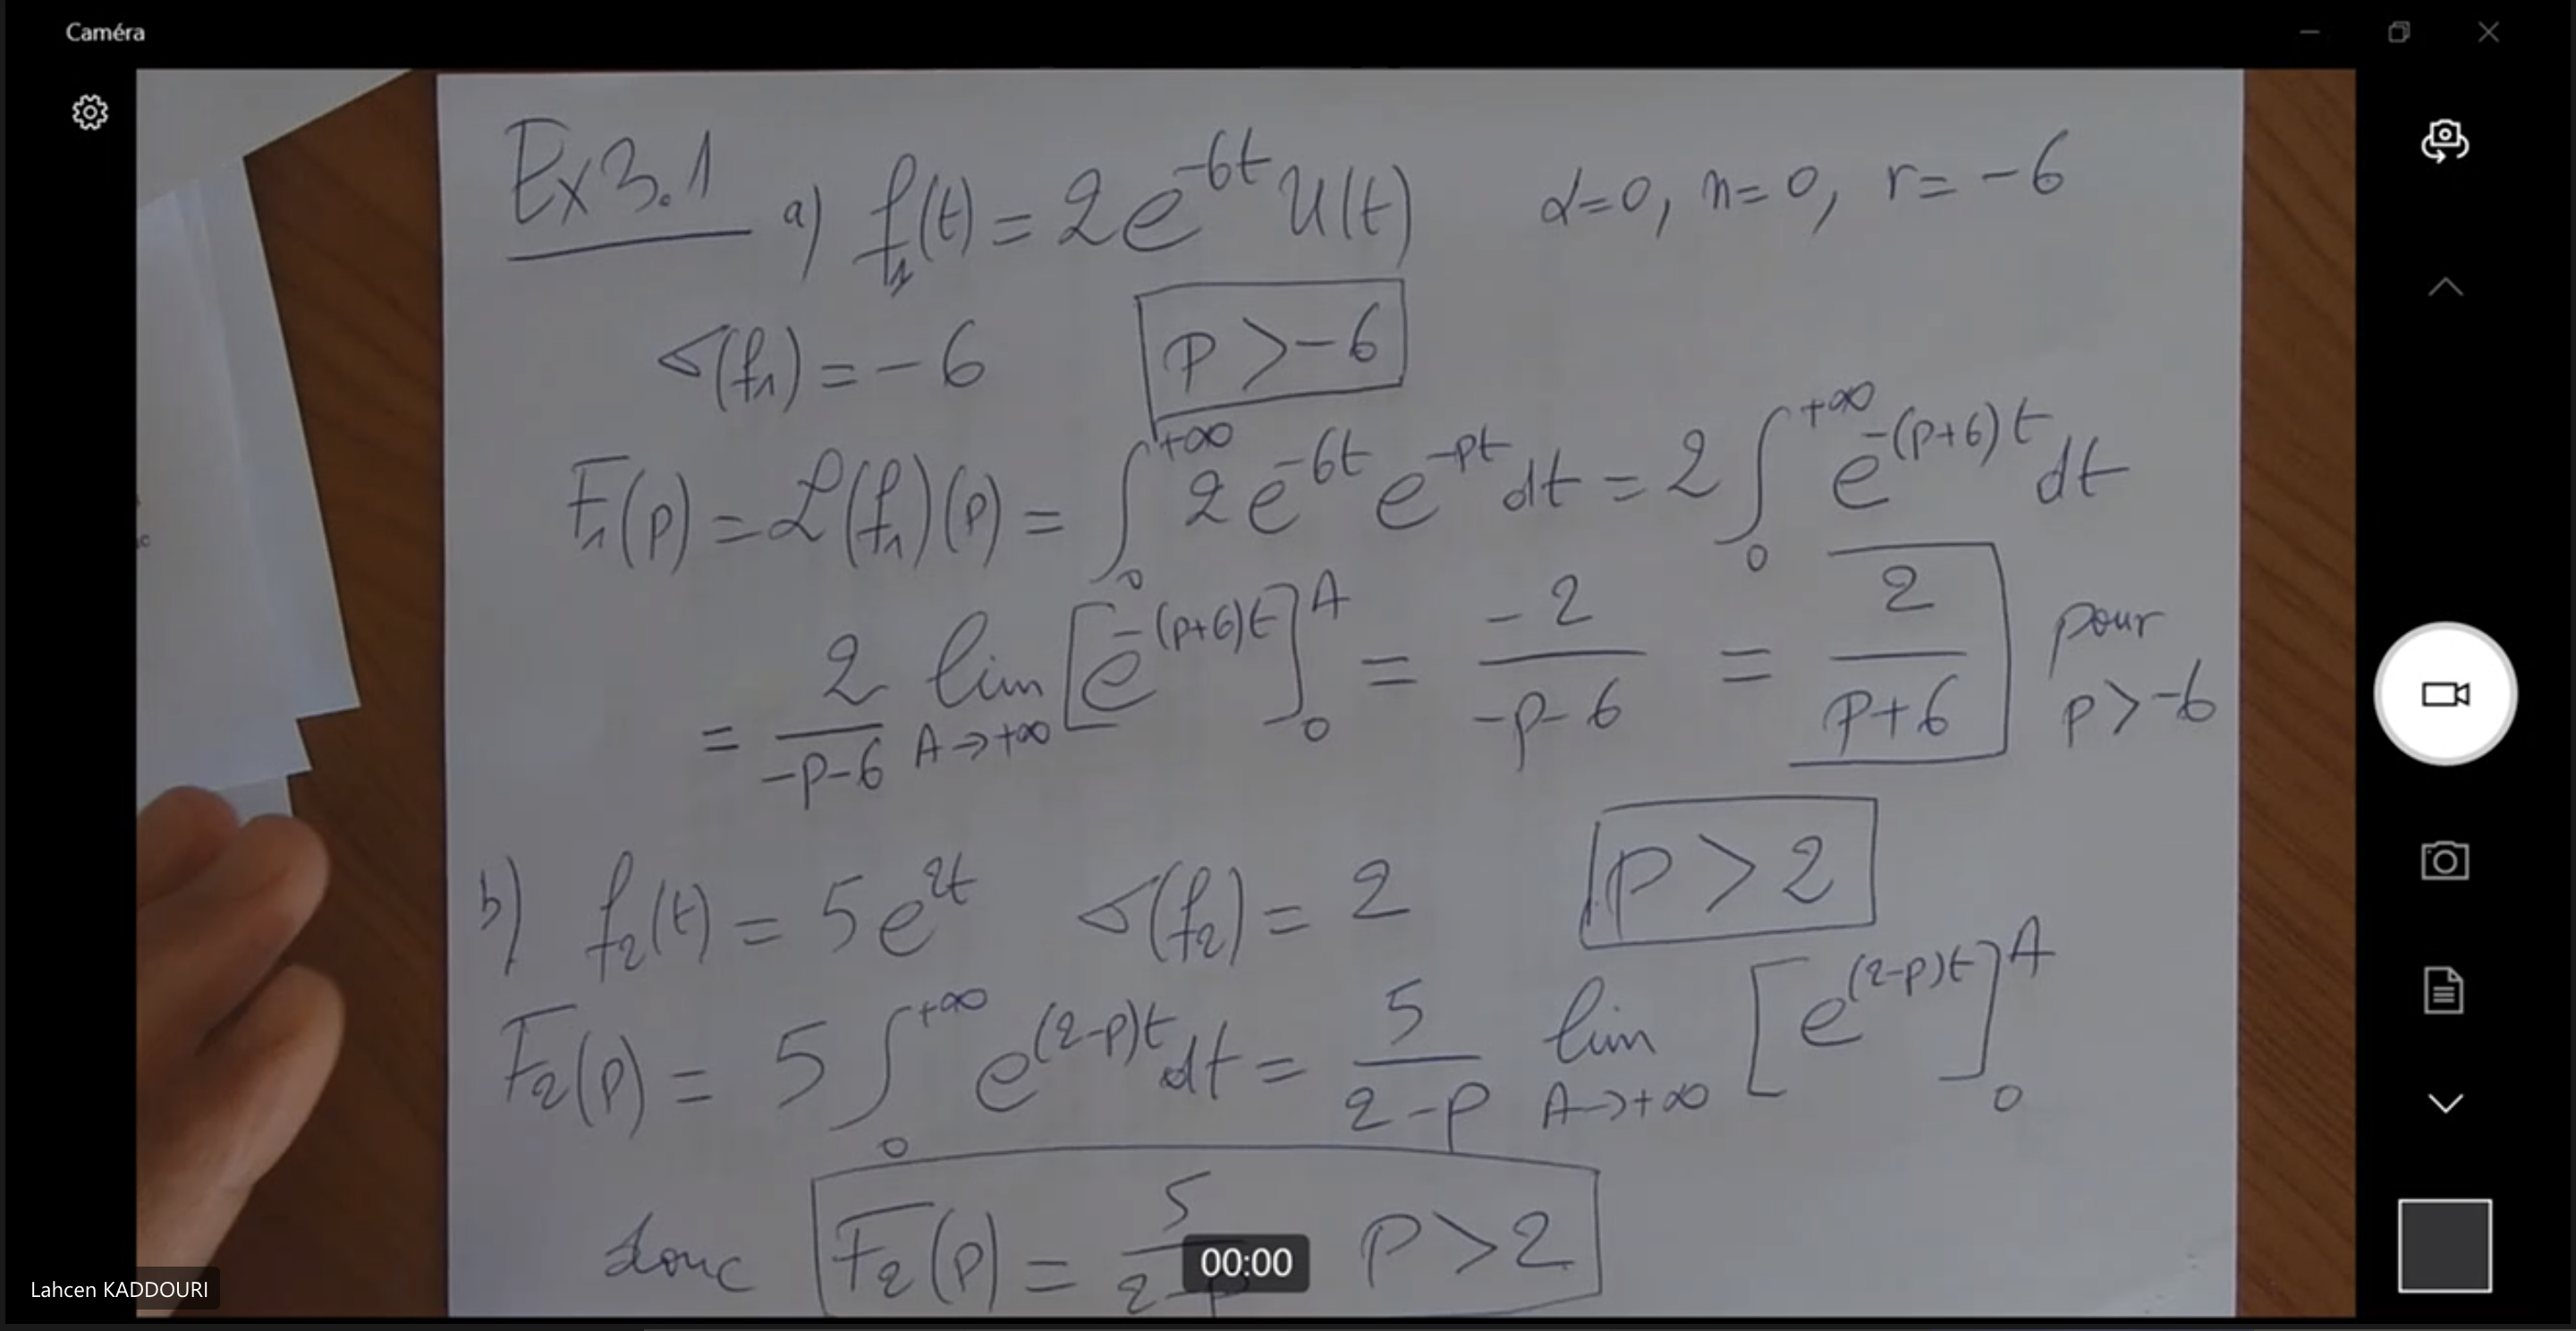 Caméra
Ex 3.1 a) f₁(t) = 2e^{-6t} U(t) α=0, n=0, r= -6
σ(f₁) = -6 p > -6
F₁(p) = ℒ(f₁)(p) = ∫₀^{+∞} 2e^{-6t} e^{-pt} dt = 2 ∫₀^{+∞} e^{-(p+6)t} dt
= 2/(-p-6) lim_{A→+∞} [e^{-(p+6)t}]₀^A = -2/(-p-6) = 2/(p+6) pour p > -6
b) f₂(t) = 5e^{2t} σ(f₂) = 2 p > 2
F₂(p) = 5 ∫₀^{+∞} e^{(2-p)t} dt = 5/(2-p) lim_{A→+∞} [e^{(2-p)t}]₀^A
donc F₂(p) = 5/(2-p) p > 2
00:00
Lahcen KADDOURI